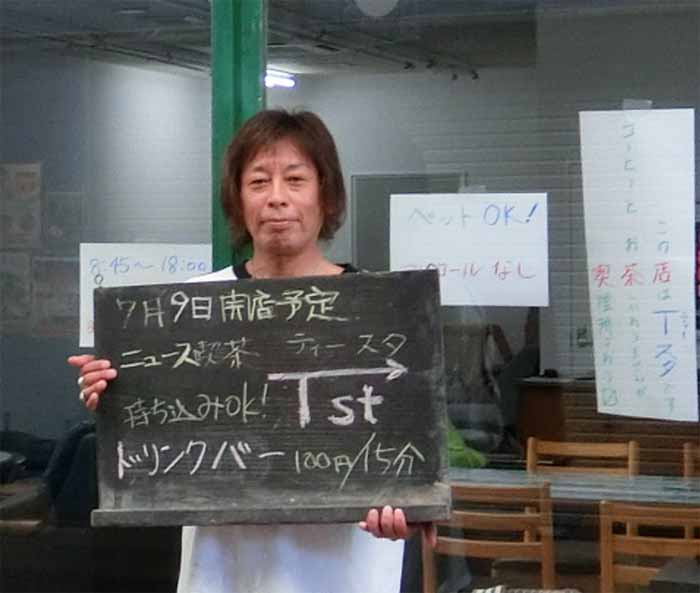 7月9日開店予定
ニュース喫茶 ティースタ
持ち込みOK! Tst
ドリンクバー 100円/15分
8:45～18:00
ペットOK!
アルコールなし
この店はTスタです
コーヒーとお
喫茶